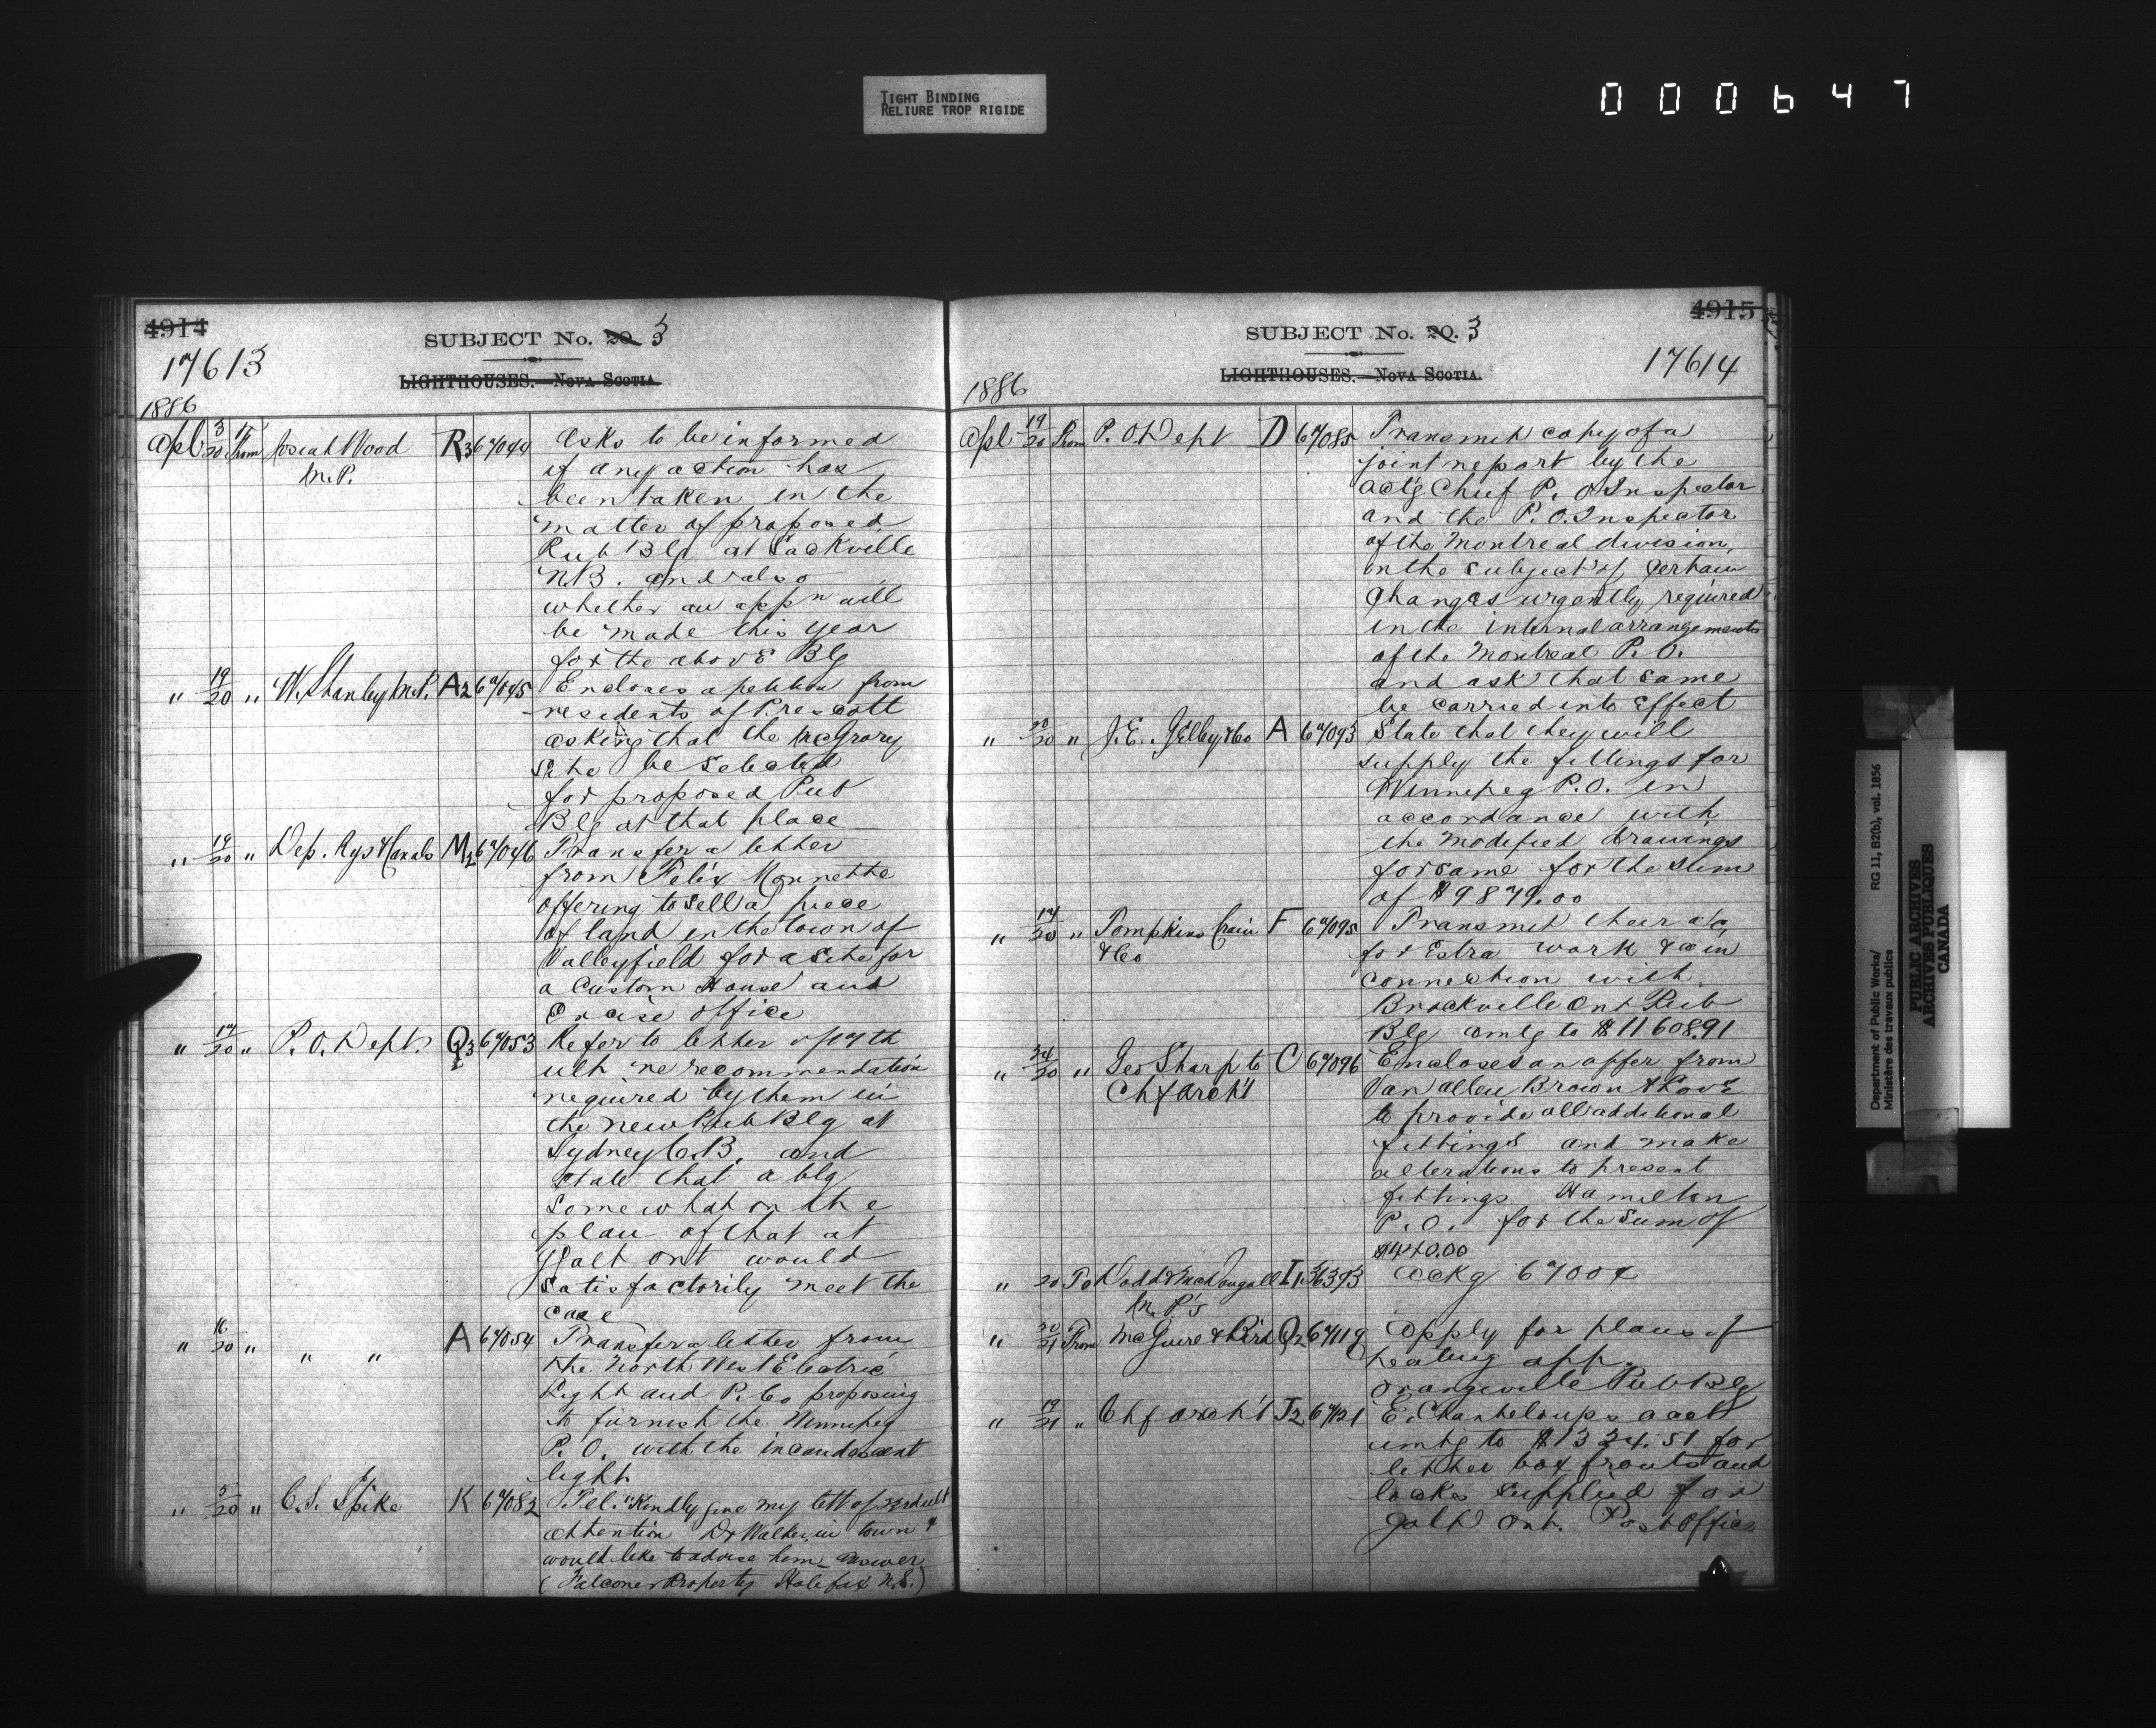 TIGHT BINDING
RELIURE TROP RIGIDE
000647
4914
SUBJECT No. 20 3
17613
LIGHTHOUSES. NOVA SCOTIA.
1886
Apl 3/20 15 From Josiah Wood R3 67044 Asks to be informed
M.P. if any action has
been taken in the
matter of proposed
Pub Blg at Sackville
N.B. and also
whether an appn will
be made this year
for the above Blg
" 19/20 " W. Stanley M.P. A2 67045 Encloses a petition from
residents of Prescott
asking that the McGrory
site be selected
for proposed Pub
Blg at that place
" 19/20 " Dep. Rys & Canals M2 67046 Transfer a letter
from Felix Monnette
offering to sell a piece
of land in the town of
Valleyfield for a site for
a Custom House and
Excise office
" 17/20 " P. O. Dept. Q3 67053 Refer to letter of 17th
ult re recommendation
required by them in
the new Pub Blg at
Sydney C.B. and
state that a blg
somewhat on the
plan of that at
Galt Ont would
satisfactorily meet the
case
" 16/20 " " " A 67054 Transfer a letter from
the North West Electric
Light and P. Co proposing
to furnish the Winnipeg
P. O. with the incandescent
light
" 5/20 " C. S. Spike K 67082 Tel. "Kindly give my lett of 23rd ult
attention Dr Walker in town &
would like to advise him answer
(Falconer Property Halifax N.S.)
4915
SUBJECT No. 20. 3
17614
LIGHTHOUSES. NOVA SCOTIA.
1886
Apl 19/20 From P. O. Dept D 67085 Transmit copy of a
joint report by the
actg Chief P. O Inspector
and the P. O. Inspector
of the Montreal division,
on the subject of certain
changes urgently required
in the internal arrangements
of the Montreal P. O.
and ask that same
be carried into effect
" 20/20 " J. E. Gelley & Co A 67093 State that they will
supply the fittings for
Winnipeg P.O. in
accordance with
the modified drawings
for same for the sum
of $9879.00
" 17/20 " Tompkins Crain F 67095 Transmit their a/c
& Co for Extra work &c in
connection with
Brockville Ont Pub
Blg amtg to $11608.91
" 24/20 " Geo Sharp to C 67096 Encloses an offer from
Chf Archt Van allen Brown & Love
to provide all additional
fittings and make
alterations to present
fittings Hamilton
P. O. for the sum of
$440.00
" 20 To Dodd & McDougall I1 36393 Ackg 67004
M. P's
" 20/21 From McGuire & Bird Q2 67119 Apply for plans of
heating app.
Orangeville Pub Blg
" 19/21 " Chf Archt J2 67121 E. Chanteloups acct
amtg to $1324.51 for
letter box fronts and
locks supplied for
Galt Ont. Post Office
Department of Public Works/
Ministère des travaux publics
RG 11, B2(b), vol. 1856
PUBLIC ARCHIVES
ARCHIVES PUBLIQUES
CANADA